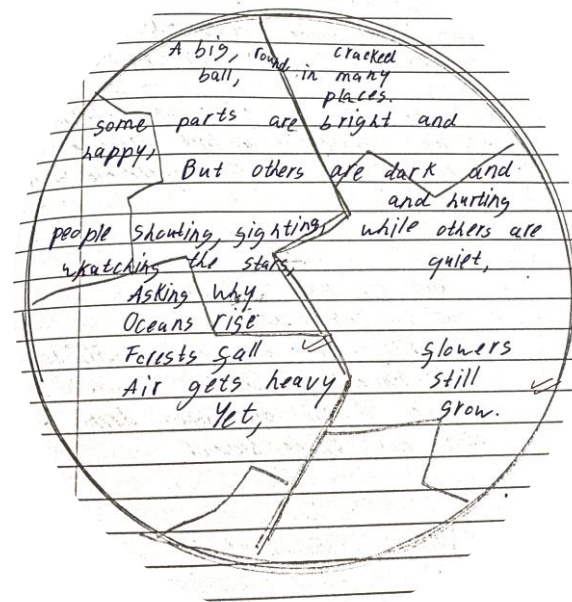 A big, round, cracked
ball, in many
places.
some parts are bright and
happy,
But others are dark and
and hurting
people shouting, fighting, while others are
watching the stars, quiet,
Asking why
Oceans rise
Forests fall flowers
Air gets heavy still
Yet, grow.